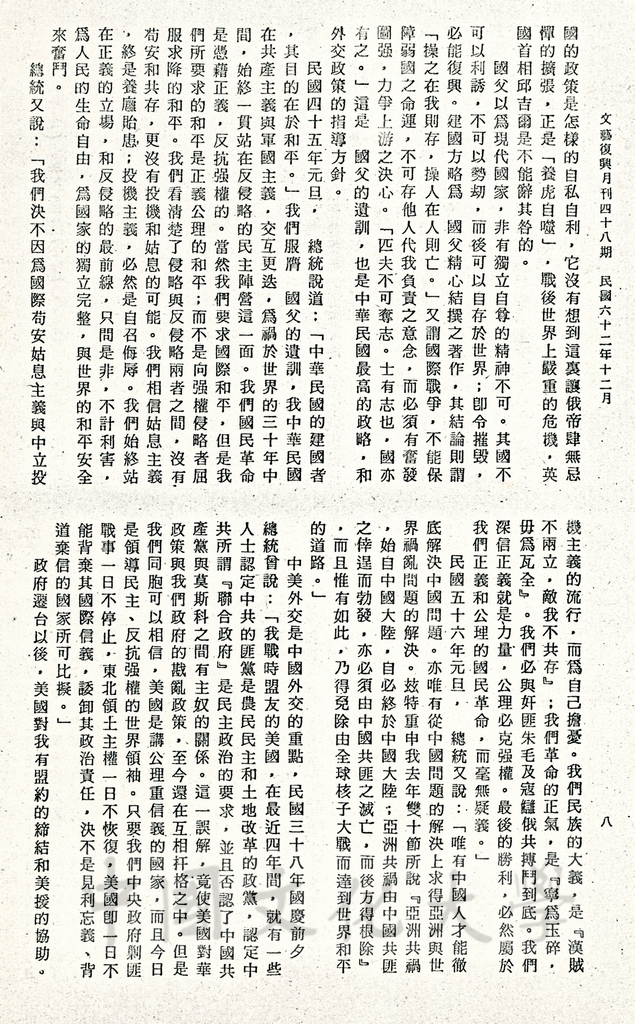 文藝復興月刊四十八期　民國六十二年十二月
國的政策是怎樣的自私自利，它沒有想到這裏讓俄帝肆無忌
憚的擴張，正是「養虎自噬」，戰後世界上嚴重的危機，英
國首相邱吉爾是不能辭其咎的。
國父以爲現代國家，非有獨立自尊的精神不可。其國不
可以利誘，不可以勢劫，而後可以自存於世界；卽令摧毀，
必能復興。建國方略爲　國父精心結撰之著作，其結論則謂
「操之在我則存，操人在人則亡。」又謂國際戰爭，不能保
障弱國之命運，不可存他人代我負責之意念，而必須有奮發
圖强，力爭上游之決心。「匹夫不可奪志。士有志也，國亦
有之。」這是　國父的遺訓，也是中華民國最高的政略，和
外交政策的指導方針。
民國四十五年元旦，　總統說道：「中華民國的建國者
，其目的在於和平。」我們服膺　國父的遺訓，我中華民國
在共產主義與軍國主義，交互更迭，爲禍於世界的三十年中
間，始終一貫站在反侵略的民主陣營這一面。我們國民革命
是憑藉正義，反抗强權的。當然我們要求國際和平，但是我
們所要求的和平是正義公理的和平；而不是向强權侵略者屈
服求降的和平。我們看清楚了侵略與反侵略兩者之間，沒有
苟安和共存，更沒有投機和姑息的可能。我們相信姑息主義
，終是養癰貽患；投機主義，必然是自召侮辱。我們始終站
在正義的立場，和反侵略的最前線，只問是非，不計利害，
爲人民的生命自由，爲國家的獨立完整，與世界的和平安全
來奮鬥。
總統又說：「我們決不因爲國際苟安姑息主義與中立投
八
機主義的流行，而爲自己擔憂。我們民族的大義，是『漢賊
不兩立，敵我不共存』；我們革命的正氣，是『寧爲玉碎，
毋爲瓦全』。我們必與奸匪朱毛及寇讎俄共搏鬥到底。我們
深信正義就是力量，公理必克强權。最後的勝利，必然屬於
我們正義和公理的國民革命，而毫無疑義。」
民國五十六年元旦，　總統又說：「唯有中國人才能徹
底解決中國問題。亦唯有從中國問題的解決上求得亞洲與世
界禍亂問題的解決。玆特重申我去年雙十節所說『亞洲共禍
，始自中國大陸，自必終於中國大陸；亞洲共禍由中國共匪
之倖逞而勃發，亦必須由中國共匪之滅亡，而後方得根除』
，而且惟有如此，乃得免除由全球核子大戰而達到世界和平
的道路。」
中美外交是中國外交的重點，民國三十八年國慶前夕
總統曾說：「我戰時盟友的美國，在最近四年間，就有一些
人士認定中共的匪黨是農民民主和土地改革的政黨，認定中
共所謂『聯合政府』是民主政治的要求，並且否認了中國共
產黨與莫斯科之間有主奴的關係。這一誤解，竟使美國對華
政策與我們政府的戡亂政策，至今還在互相扞格之中。但是
我們同胞可以相信，美國是講公理重信義的國家，而且今日
是領導民主、反抗强權的世界領袖。只要我們中央政府剿匪
戰事一日不停止，東北領土主權一日不恢復，美國卽一日不
能背棄其國際信義，諉卸其政治責任，決不是見利忘義、背
道棄信的國家所可比擬。」
政府遷台以後，美國對我有盟約的締結和美援的協助。
中國文化大學